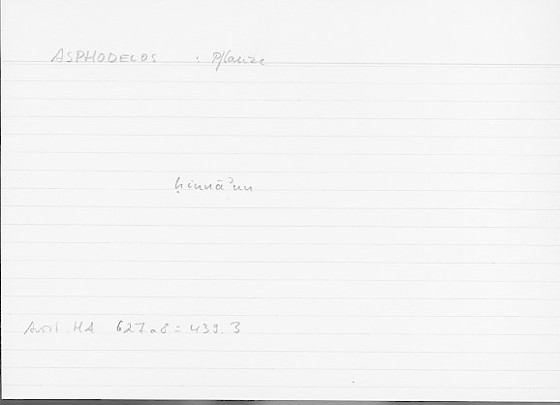 ASPHODELOS : Pflanze
ḥinnāʾun
Arist. HA 627a8 = 439.3